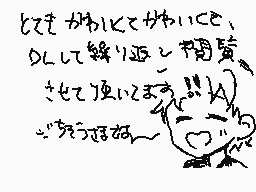 とてもかわいくてかわいくて、
DLして繰り返し閲覧
させて頂いてます!!
ごちそうさまですー